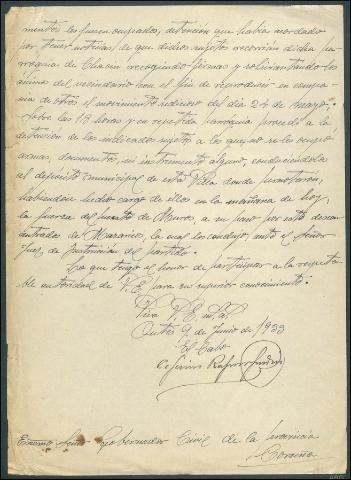 mentos les fuesen ocupados, detención que había acordado
por tener noticias, de que dichos sujetos recorrían dicha pa-
rroquia de Chacín recogiendo firmas y soliviantando los
ánimos del vecindario con el fin de reproducir en compa-
ñía de otros el movimiento sedicioso del día 24 de mayo.
Sobre las 18 horas y en repetida parroquia procedió a la
detención de los indicados sujetos a los que no se les ocupó
armas, documentos, ni instrumento alguno, conduciéndolos
al depósito municipal de esta Villa donde pernoctaron,
habiéndose hecho cargo de ellos en la mañana de hoy,
la fuerza del puesto de Muros, a su paso por esta descon-
centrados de Mazaricos, la cual los condujo, ante el Señor
Juez de Instrucción del partido.
Lo que tengo el honor de participar a la respeta-
ble autoridad de V.E. para su superior conocimiento.
Viva V.E. m. a.
Outes 9 de Junio de 1933
El Cabo
Excmo. Señor Gobernador Civil de la provincia
Coruña